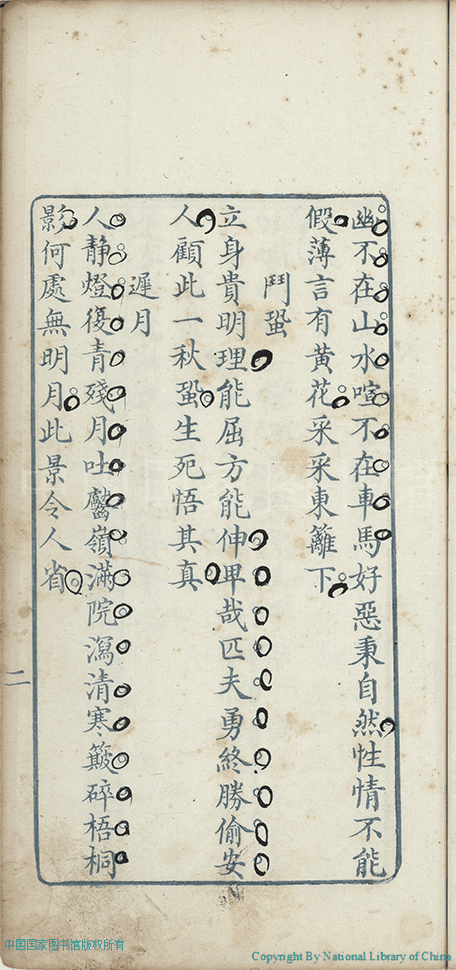 幽不在山水喧不在車馬好惡秉自然性情不能
假薄言有黃花采采東籬下
鬥蛩
立身貴明理能屈方能伸卑哉匹夫勇終勝偷安
人顧此一秋蛩生死悟其真
遲月
人静燈復青殘月吐巘嶺滿院瀉清寒簸碎梧桐
影何處無明月此景令人省
二
中国国家图书馆版权所有
Copyright By National Library of China